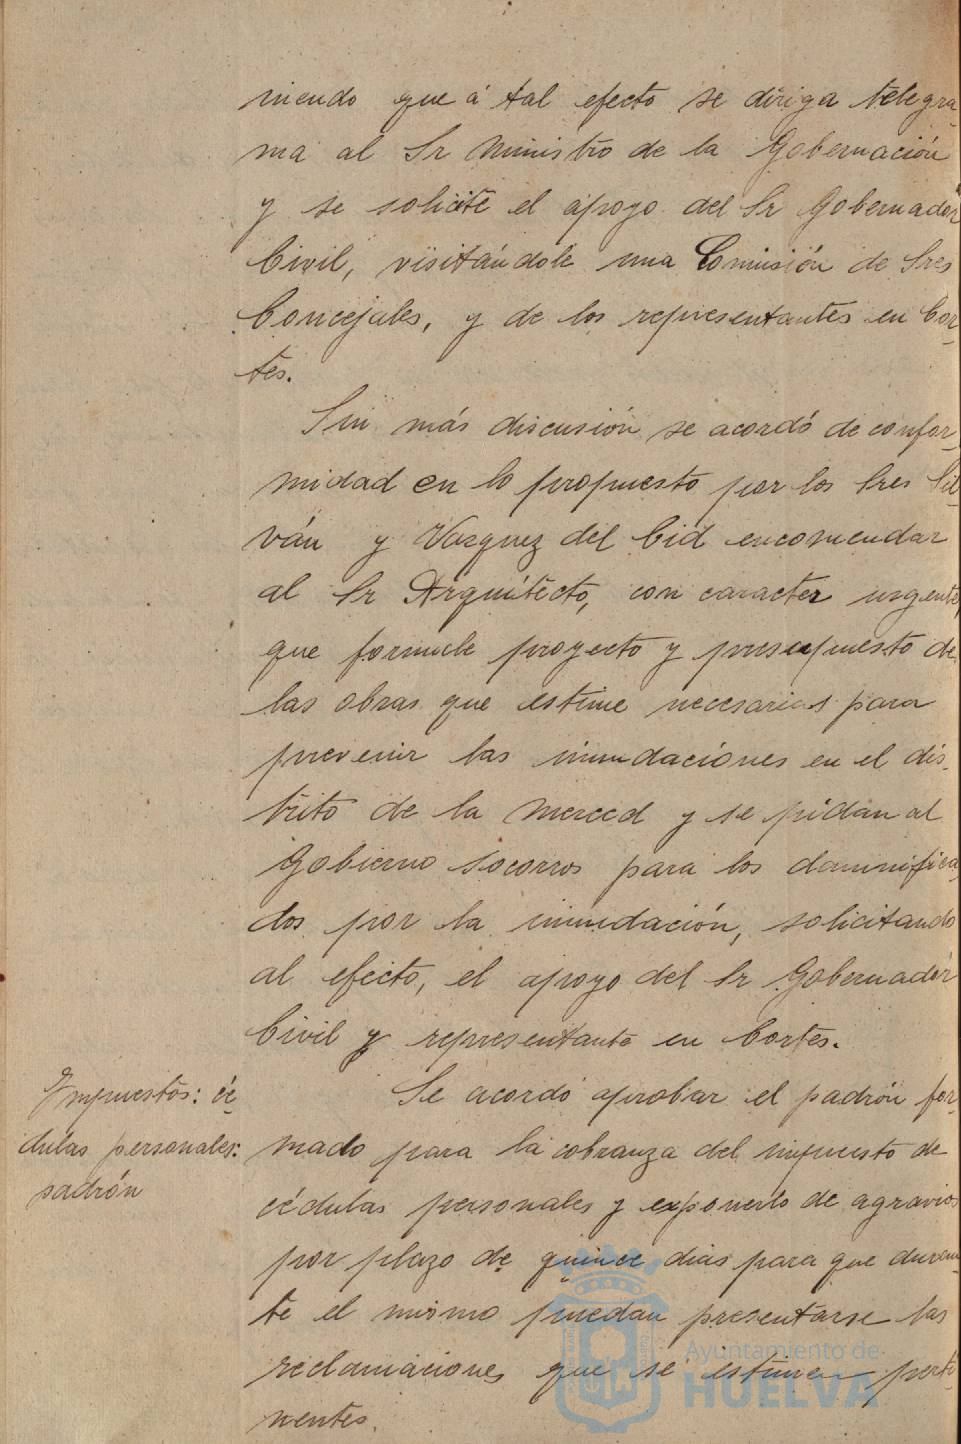 niendo que á tal efecto se dirija telegra-
ma al Sr Ministro de la Gobernación
y se solicite el apoyo del Sr Gobernador
Civil, visitándole una Comisión de Sres
Concejales, y de los representantes en Cor-
tes.
Sin más discusión se acordó de confor-
midad en lo propuesto por los Sres Sil-
ván y Vazquez del Cid encomendar
al Sr Arquitecto, con caracter urgente,
que formule proyecto y presupuesto de
las obras que estime necesarias para
prevenir las inundaciones en el dis-
trito de la Merced y se pidan al
Gobierno socorros para los damnifica-
dos por la inundación, solicitando
al efecto, el apoyo del Sr Gobernador
Civil y representante en Cortes.
Impuestos: cé-
dulas personales:
padrón
Se acordó aprobar el padrón for-
mado para la cobranza del impuesto de
cédulas personales y exponerlo de agravios
por plazo de quince dias para que duran-
te el mismo puedan presentarse las
reclamaciones que se estimen perti-
nentes.
Ayuntamiento de
HUELVA